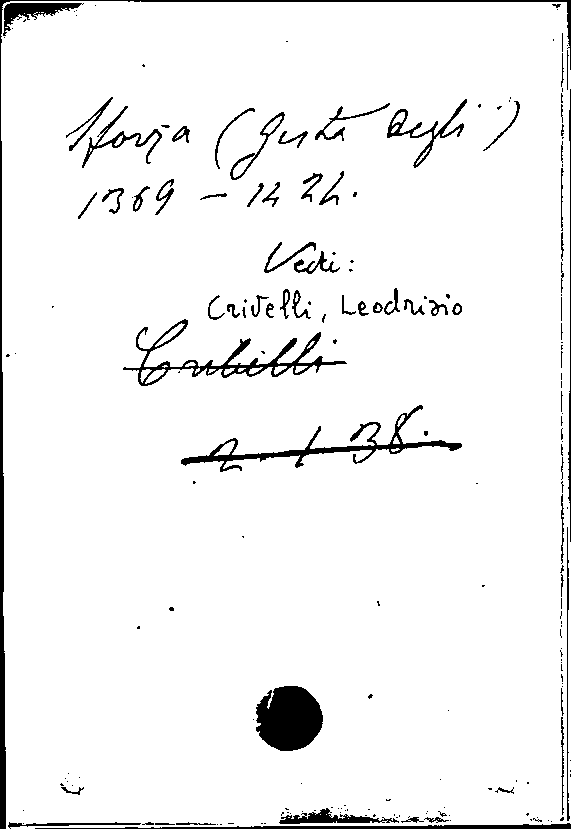 Sforza (Gesta degli)
1369 - 1424.
Vedi:
Crivelli, Leodrisio
Cribelli
2. 1 38.